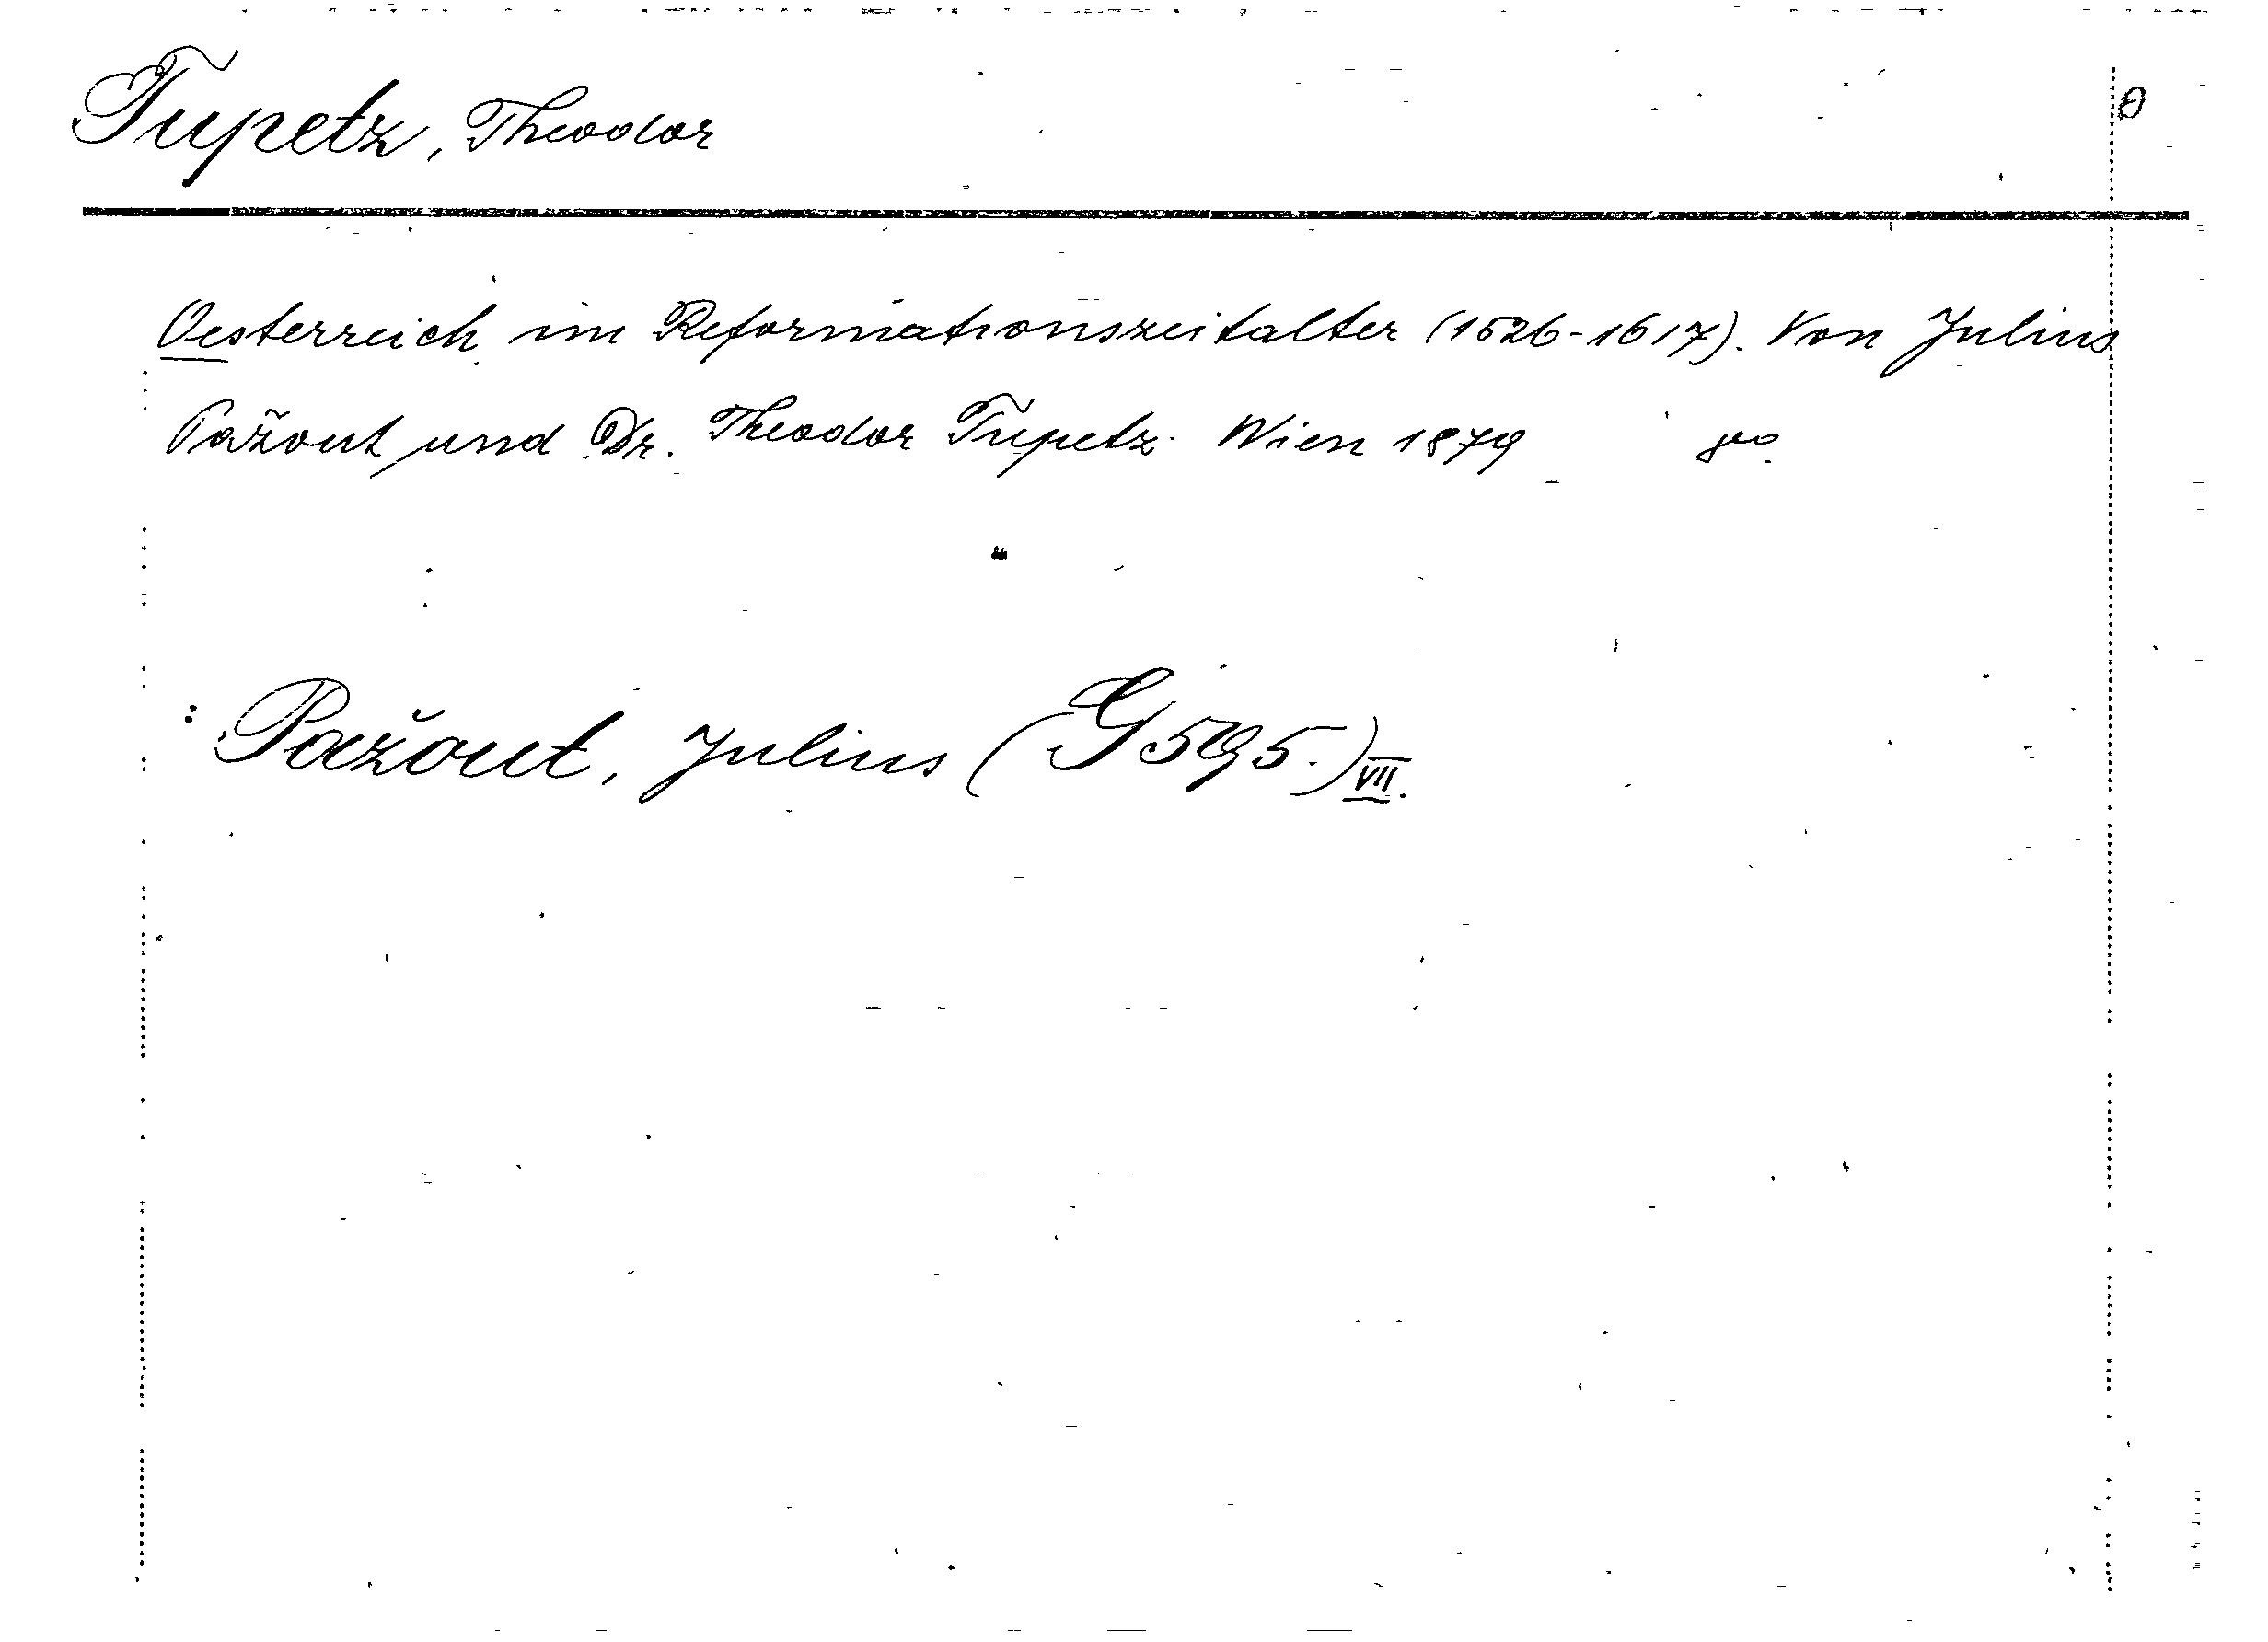 Tupetz, Theodor
Oesterreich im Reformationszeitalter (1526-1617). Von Julius
Pažout und Dr. Theodor Tupetz. Wien 1879 8º
: Pažout, Julius (G 595.) VII.